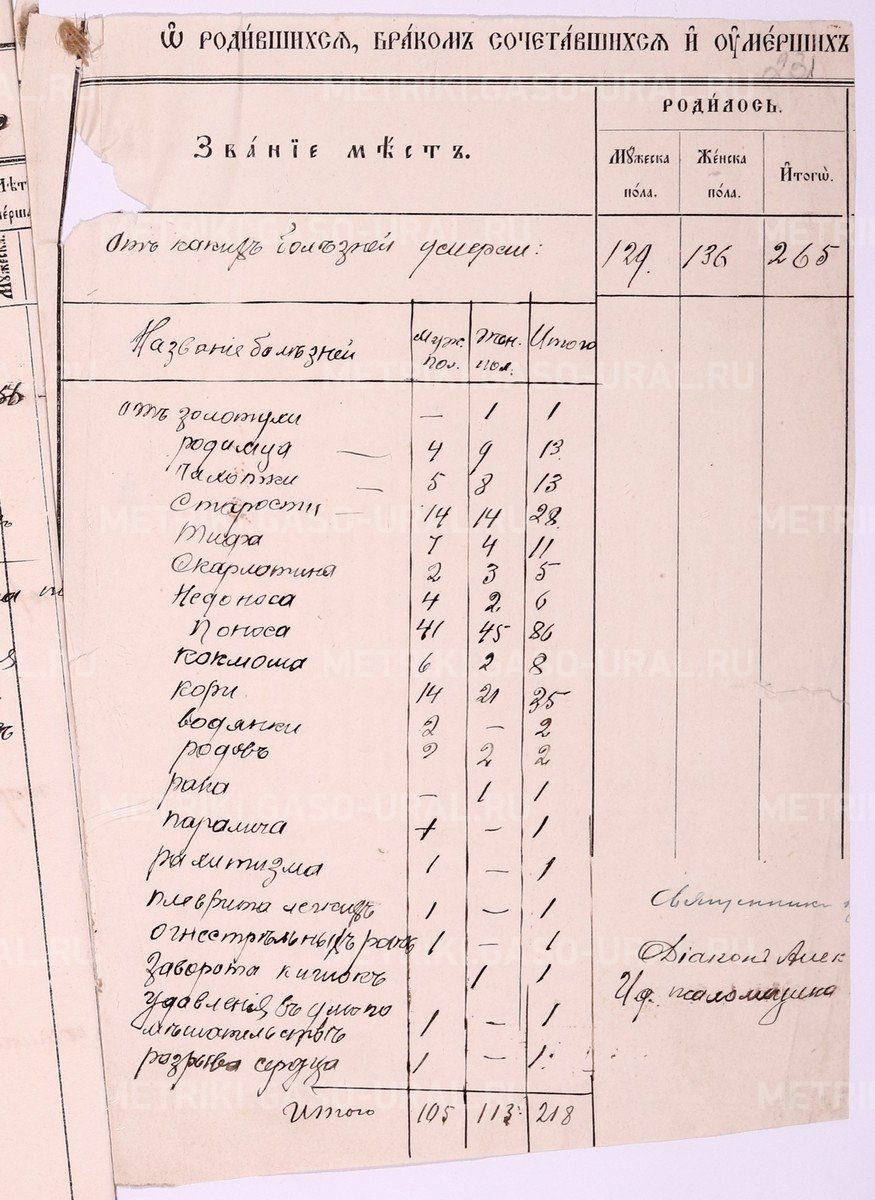 Ѡ РОДИ́ВШИХСѦ, БРА́КОМЪ СОЧЕТА́ВШИХСѦ И҆ ОУ҆МЕ́РШИХЪ
231
Зва́нїе мѣстъ.
РОДИ́ЛОСЬ.
Мꙋ́жеска по́ла.
Же́нска по́ла.
И҆тогѡ̀.
129. 136 265
Отъ какихъ болѣзней умерли:
Названіе болѣзней Муж. пол. Жен. пол. Итого
отъ золотухи — 1 1
родимца — 4 9 13
Чахотки — 5 8 13
Старости — 14 14 28
Тифа 7 4 11
Скарлатина 2 3 5
Недоноса 4 2 6
Поноса 41 45 86
Коклюша 6 2 8
Кори 14 21 35
водянки 2 — 2
родовъ 2 2 2
рака — 1 1
паралича + — 1
рахитизма 1 — 1
плеврита легкихъ 1 — 1
огнестрѣльныхъ ранъ 1 — 1
Заворота кишокъ 1 1
Удавленія въ умопо
мѣшательствѣ 1 — 1
разрыва сердца 1 — 1
Итого 105 113 218
Священники
Діаконъ Алек
И. д. псаломщика
METRIKI.GASO-URAL.RU